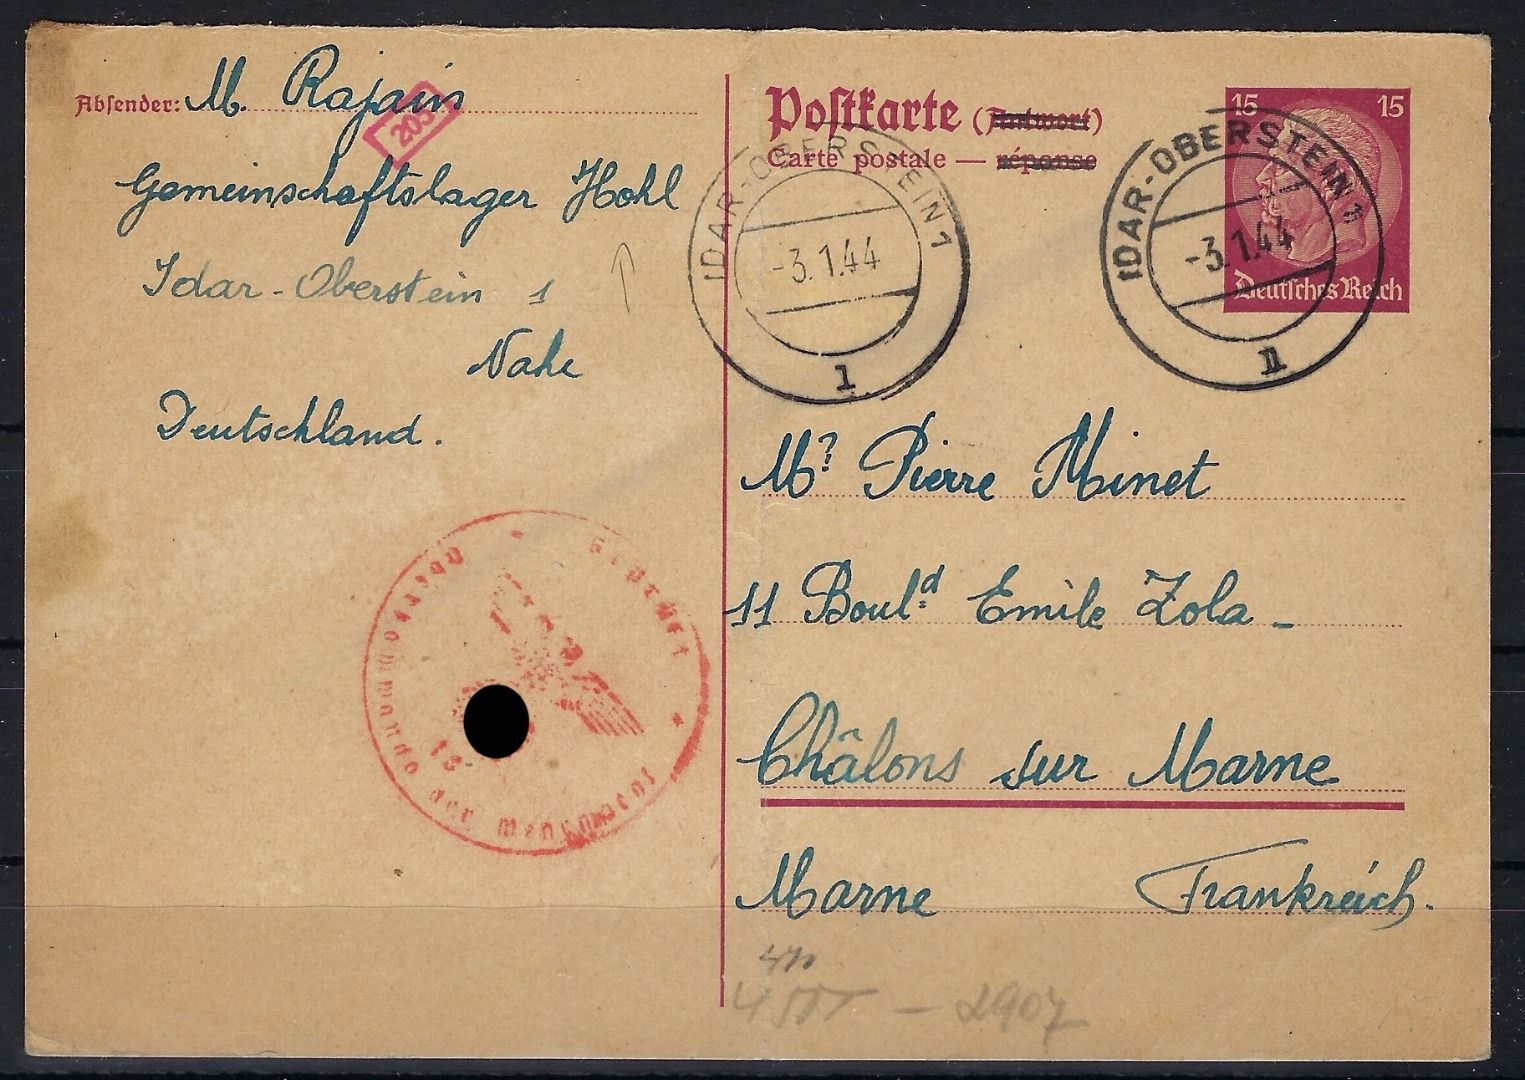 Absender: M. Rajain
203
Gemeinschaftslager Hohl
Idar-Oberstein 1
Nahe
Deutschland.
Postkarte (Antwort)
Carte postale — réponse
IDAR-OBERSTEIN 1
-3.1.44
1
15 15
Deutsches Reich
IDAR-OBERSTEIN 1
-3.1.44
n
Mr Pierre Minet
11 Bould Emile Zola -
Châlons sur Marne
Marne Frankreich.
Oberkommando der Wehrmacht
Geprüft
2907